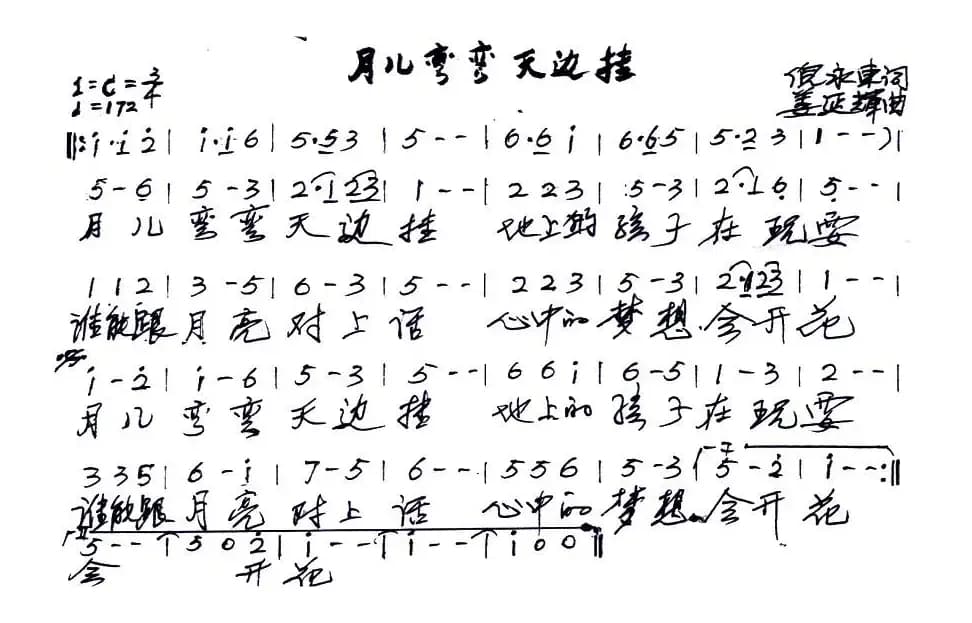 月儿弯弯天边挂
1=C=3/4
♩=172
倪永东词
姜延辉曲
‖:i·i 2̇| i·i 6| 5·5 3| 5--| 6·6 i| 6·6 5| 5·2 3| 1--)|
5-6| 5-3| 2·1 23| 1--| 2 2 3| 5-3| 2·1 6̣| 5̣--|
月儿弯弯天边挂 地上的孩子在玩耍
1 1 2| 3-5| 6-3| 5--| 2 2 3| 5-3| 2·1 23| 1--|
谁能跟月亮对上话 心中的梦想会开花
i-2̇| i-6| 5-3| 5--| 6 6 i| 6-5| 1-3| 2--|
月儿弯弯天边挂 地上的孩子在玩耍
3 3 5| 6-i| 7-5| 6--| 5 5 6| 5-3| 5-2̇| i--:‖
谁能跟月亮对上话 心中的梦想会开花
5--| 5 0 2̇| i--| i--| i 0 0‖
会 开花